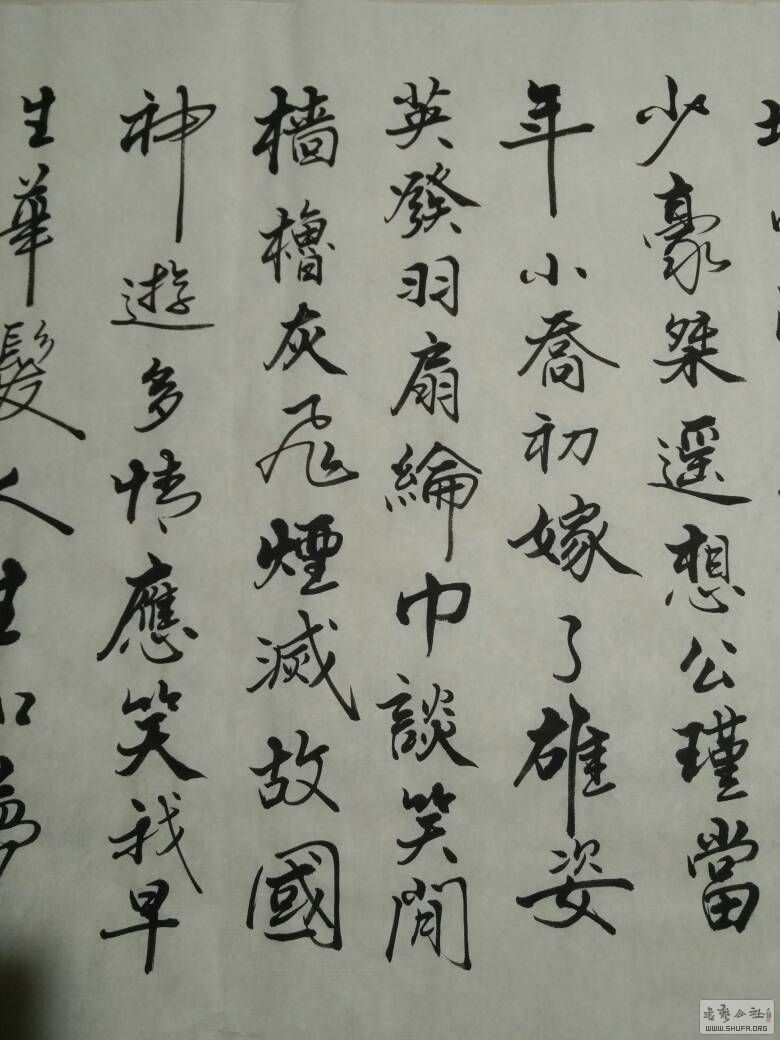 少豪桀遥想公瑾當
年小喬初嫁了雄姿
英發羽扇綸巾談笑間
檣櫓灰飛煙滅故國
神遊多情應笑我早
生華髮人生如夢
書藝公社
WWW.SHUFA.ORG